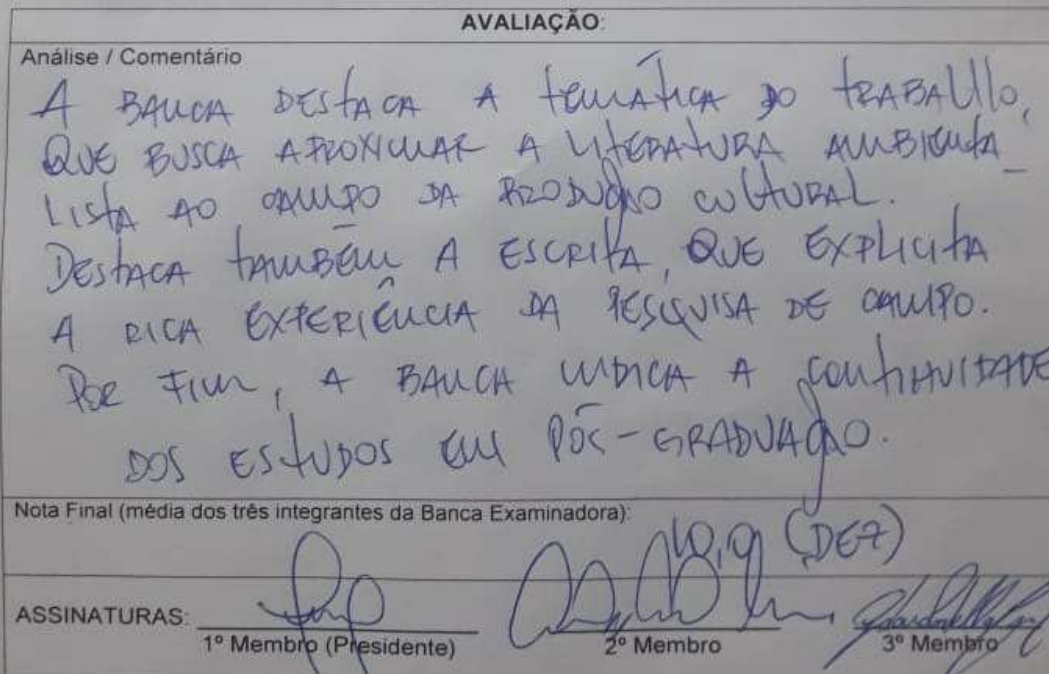 AVALIAÇÃO:
Análise / Comentário
A BANCA DESTACA A TEMÁTICA DO TRABALHO,
QUE BUSCA APROXIMAR A LITERATURA AMBIENTA-
LISTA AO CAMPO DA PRODUÇÃO CULTURAL.
DESTACA TAMBÉM A ESCRITA, QUE EXPLICITA
A RICA EXPERIÊNCIA DA PESQUISA DE CAMPO.
POR FIM, A BANCA INDICA A CONTINUIDADE
DOS ESTUDOS EM PÓS-GRADUAÇÃO.
Nota Final (média dos três integrantes da Banca Examinadora):
10,0 (DEZ)
ASSINATURAS:
1º Membro (Presidente) 2º Membro 3º Membro